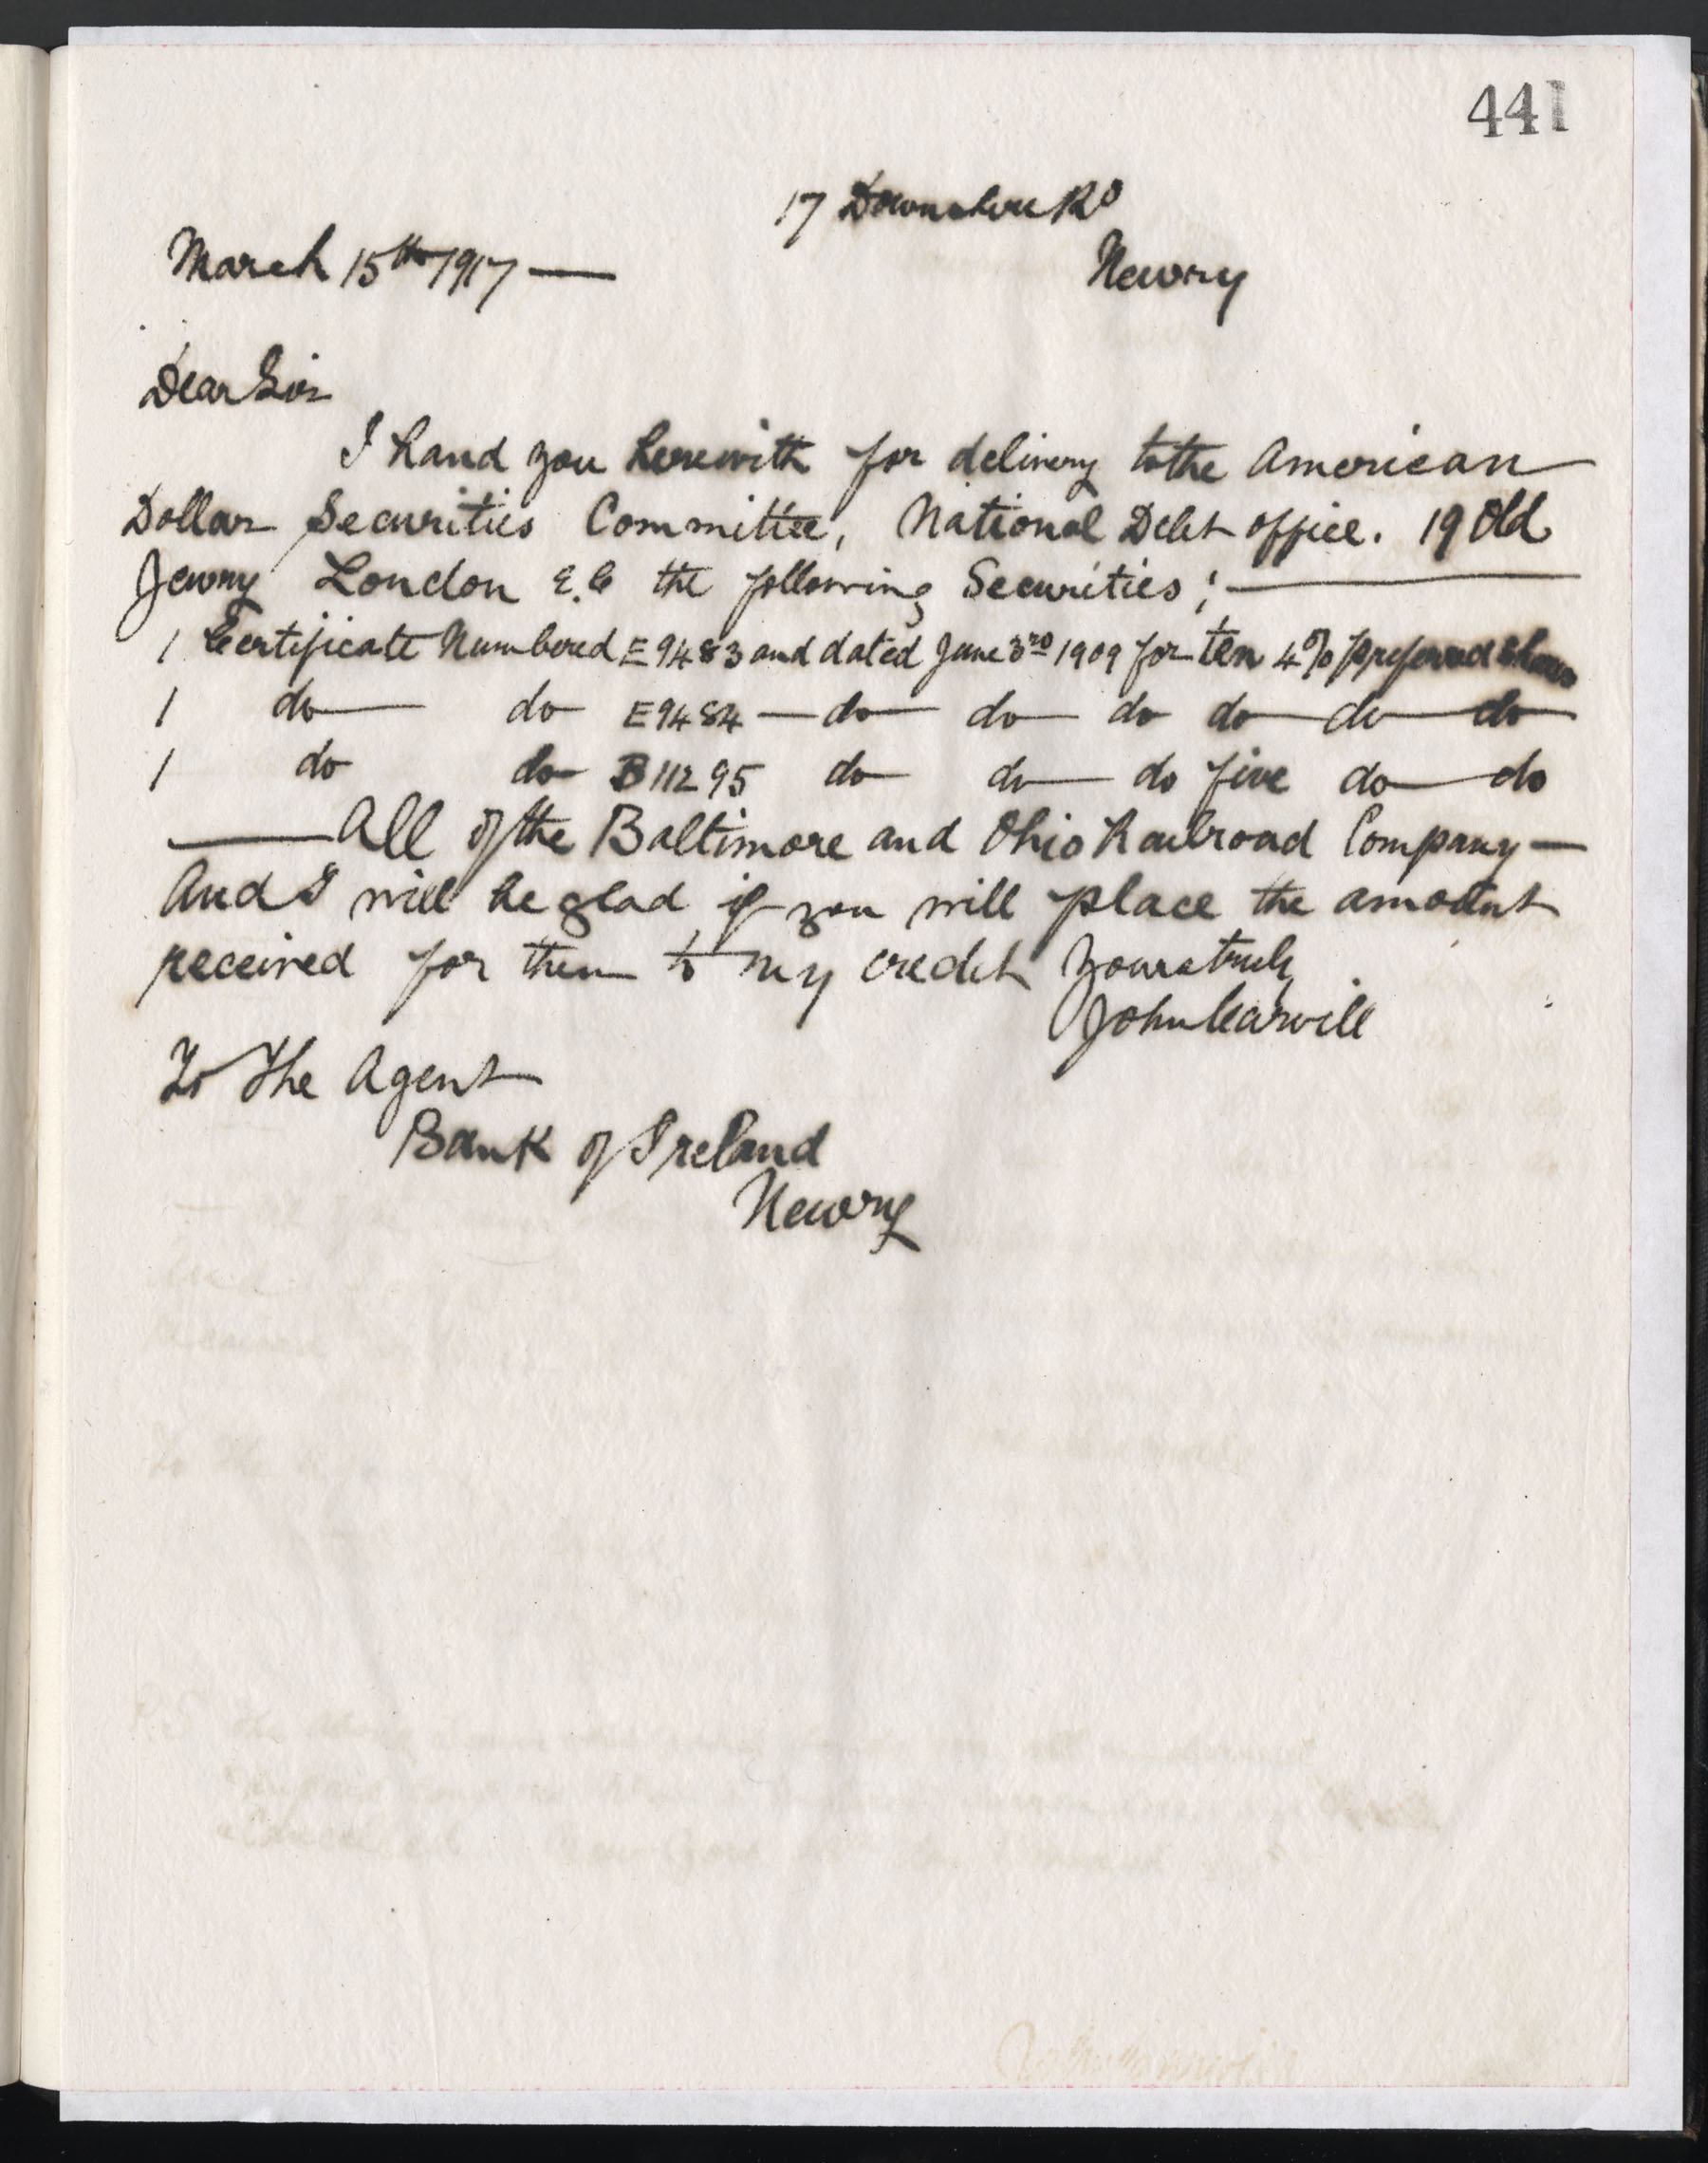 441
17 Downshire Rd
March 15th 1917 —
Newry
Dear Sir
I hand you herewith for delivery to the American
Dollar Securities Committee, National Debt office. 19 Old
Jewry London E.C the following Securities; —
1 Certificate Numbered E9483 and dated June 3rd 1909 for ten 4% preferred shares
1 do — do E9484 — do — do — do do — do — do
1 do do B11295 do — do — do five do — do
— All of the Baltimore and Ohio Railroad Company —
And I will be glad if you will place the amount
received for them to my credit Yours truly
John Carvill
To The Agent
Bank of Ireland
Newry